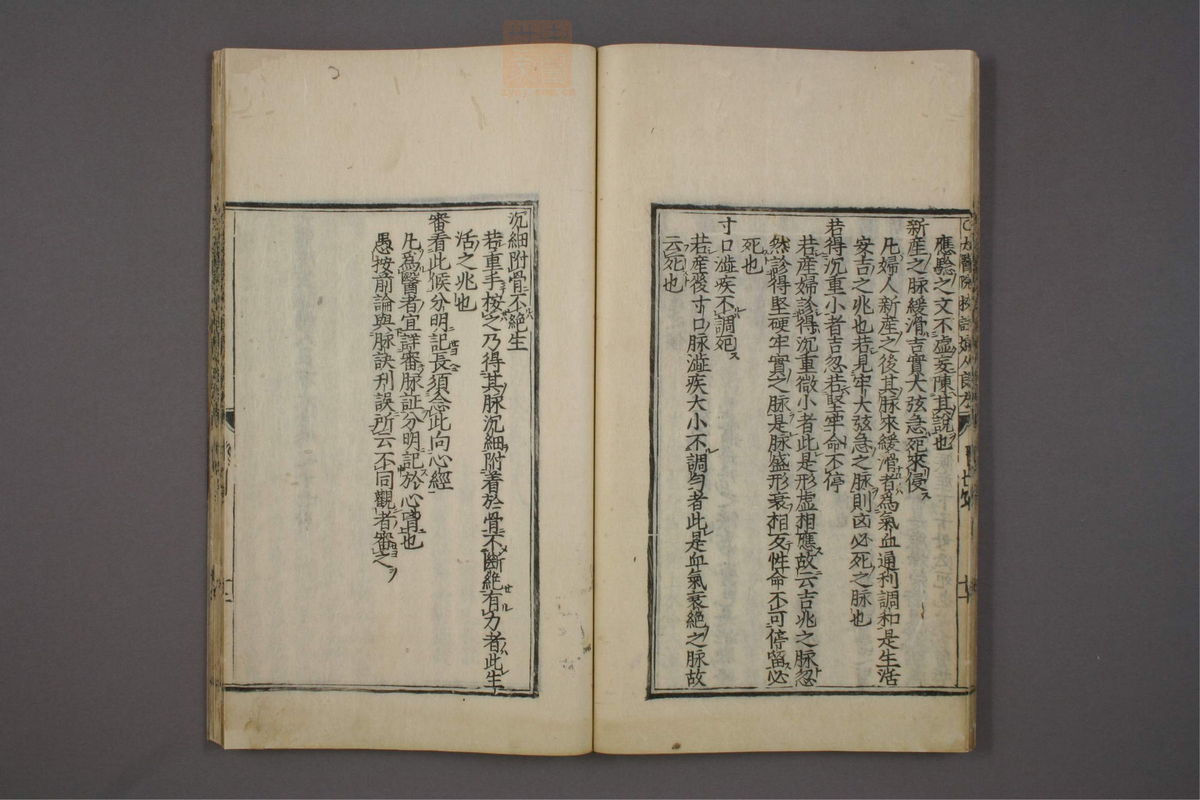 應驗之文不虛妄陳其說也
新産之脉緩滑吉實大弦急死來侵
凡婦人新産之後其脉來緩滑者為氣血通利調和是生活
安吉之兆也若見牢大弦急之脉則凶必死之脉也
若得沉重小者吉忽若堅牢命不停
若産婦診得沉重微小者此是形虛相應故云吉兆之脉忽
然診得堅硬牢實之脉是脉盛形衰相反性命不可停留必
死也
寸口澁疾不調死
若産後寸口脉澁疾大小不調勻者此是血氣衰絶之脉故
云死也
沉細附骨不絶生
若重手按之乃得其脉沉細附着於骨不斷絶有力者此生
活之兆也
審看此候分明記長須念此向心經
凡為醫者宜詳審脉証分明記於心胷也
愚按前論與脉訣刊誤所云不同觀者審之